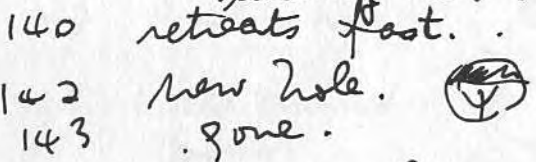 140 retreats fast.
142 new hole.
143 gone.